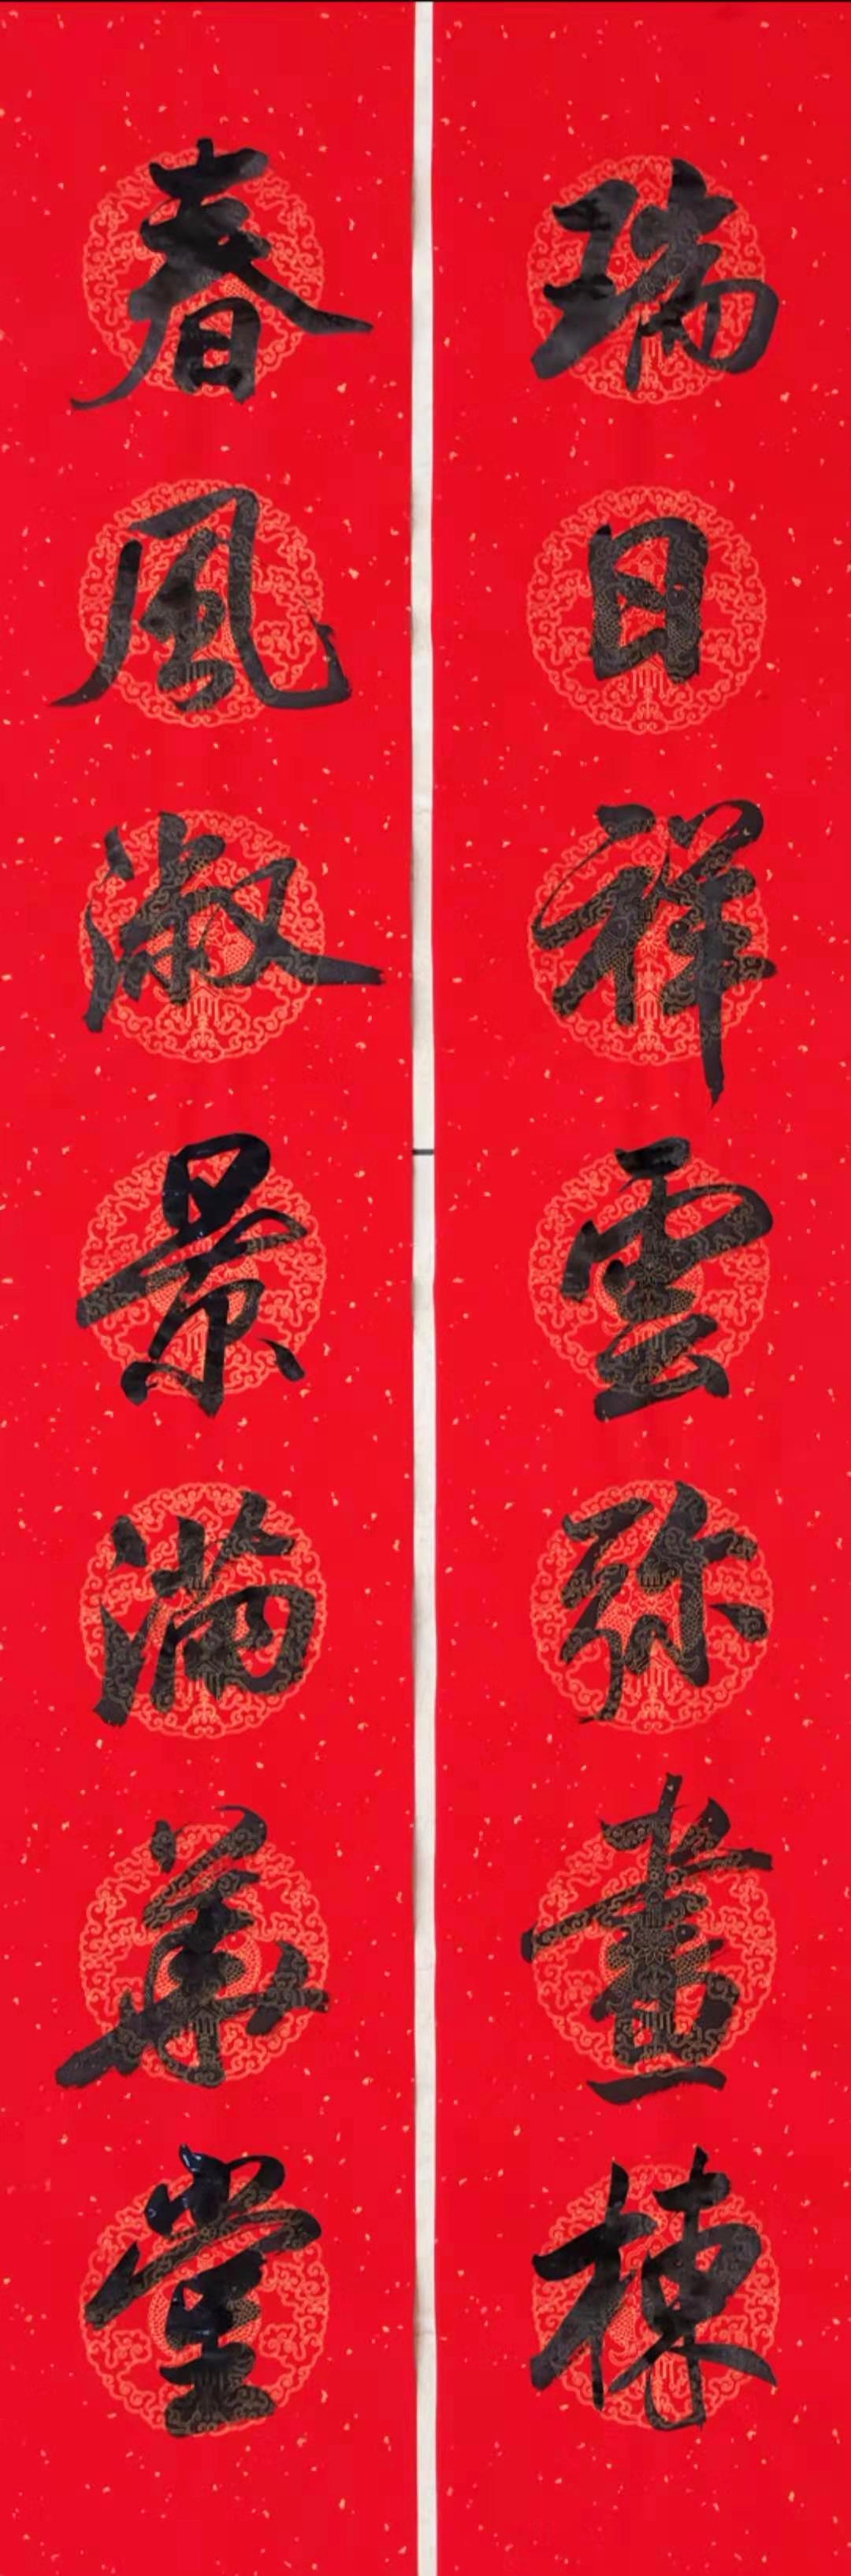 瑞日祥雲弥畫棟
春風淑景满華堂